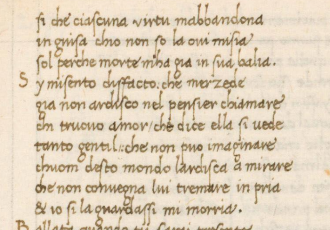 si che ciascuna virtu mabbandona
in guisa chio non so la ovi misia
sol perche morte mha gia in sua balia.
S y misento disfacto. che merzede
gia non ardisco nel pensier chiamare
chi truovo amor / che dice ella si vede
tanto gentil: che non puo imaginare
chuom desto mondo lardisca a mirare
che non convegna lui tremare in pria
& io si la guardassi mi morria.
B allata quando tu